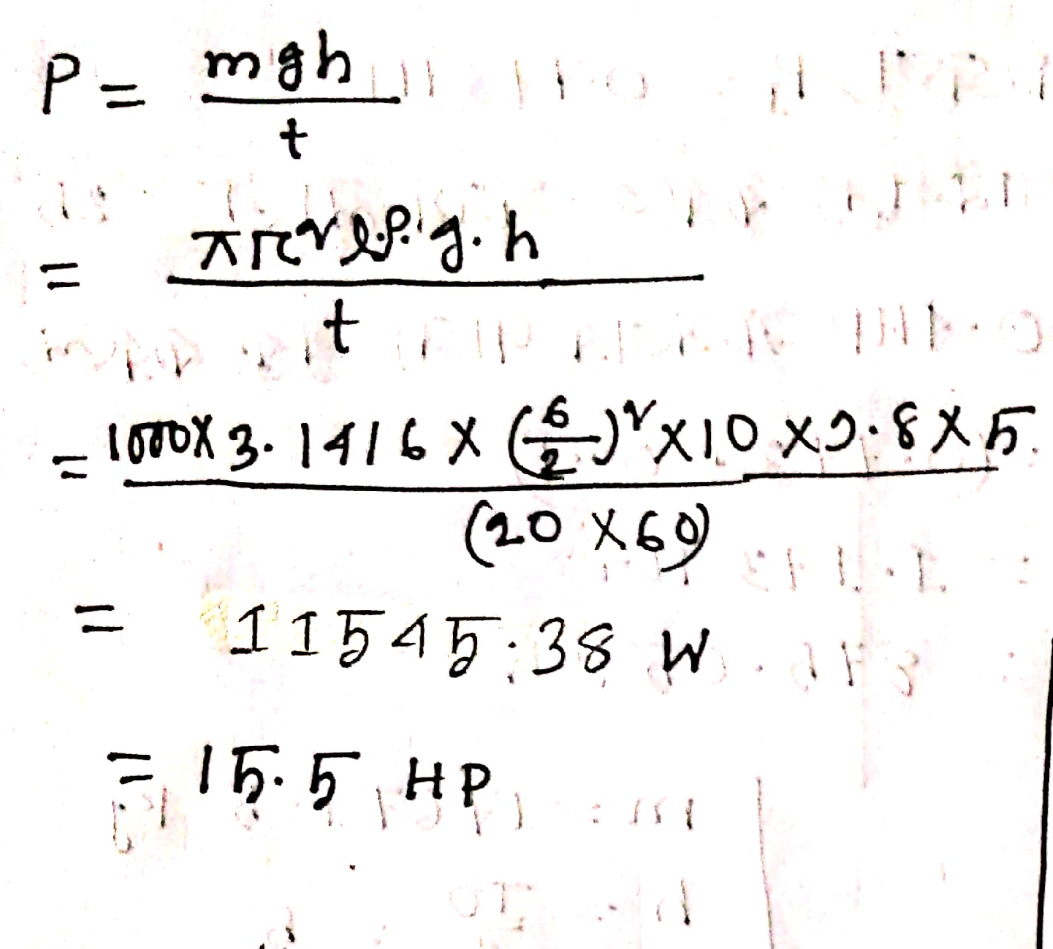 P = mgh / t
= πr²l.ρ.g.h / t
= 1000 × 3.1416 × (6/2)² × 10 × 9.8 × 5 / (20 × 60)
= 11545.38 W
= 15.5 HP